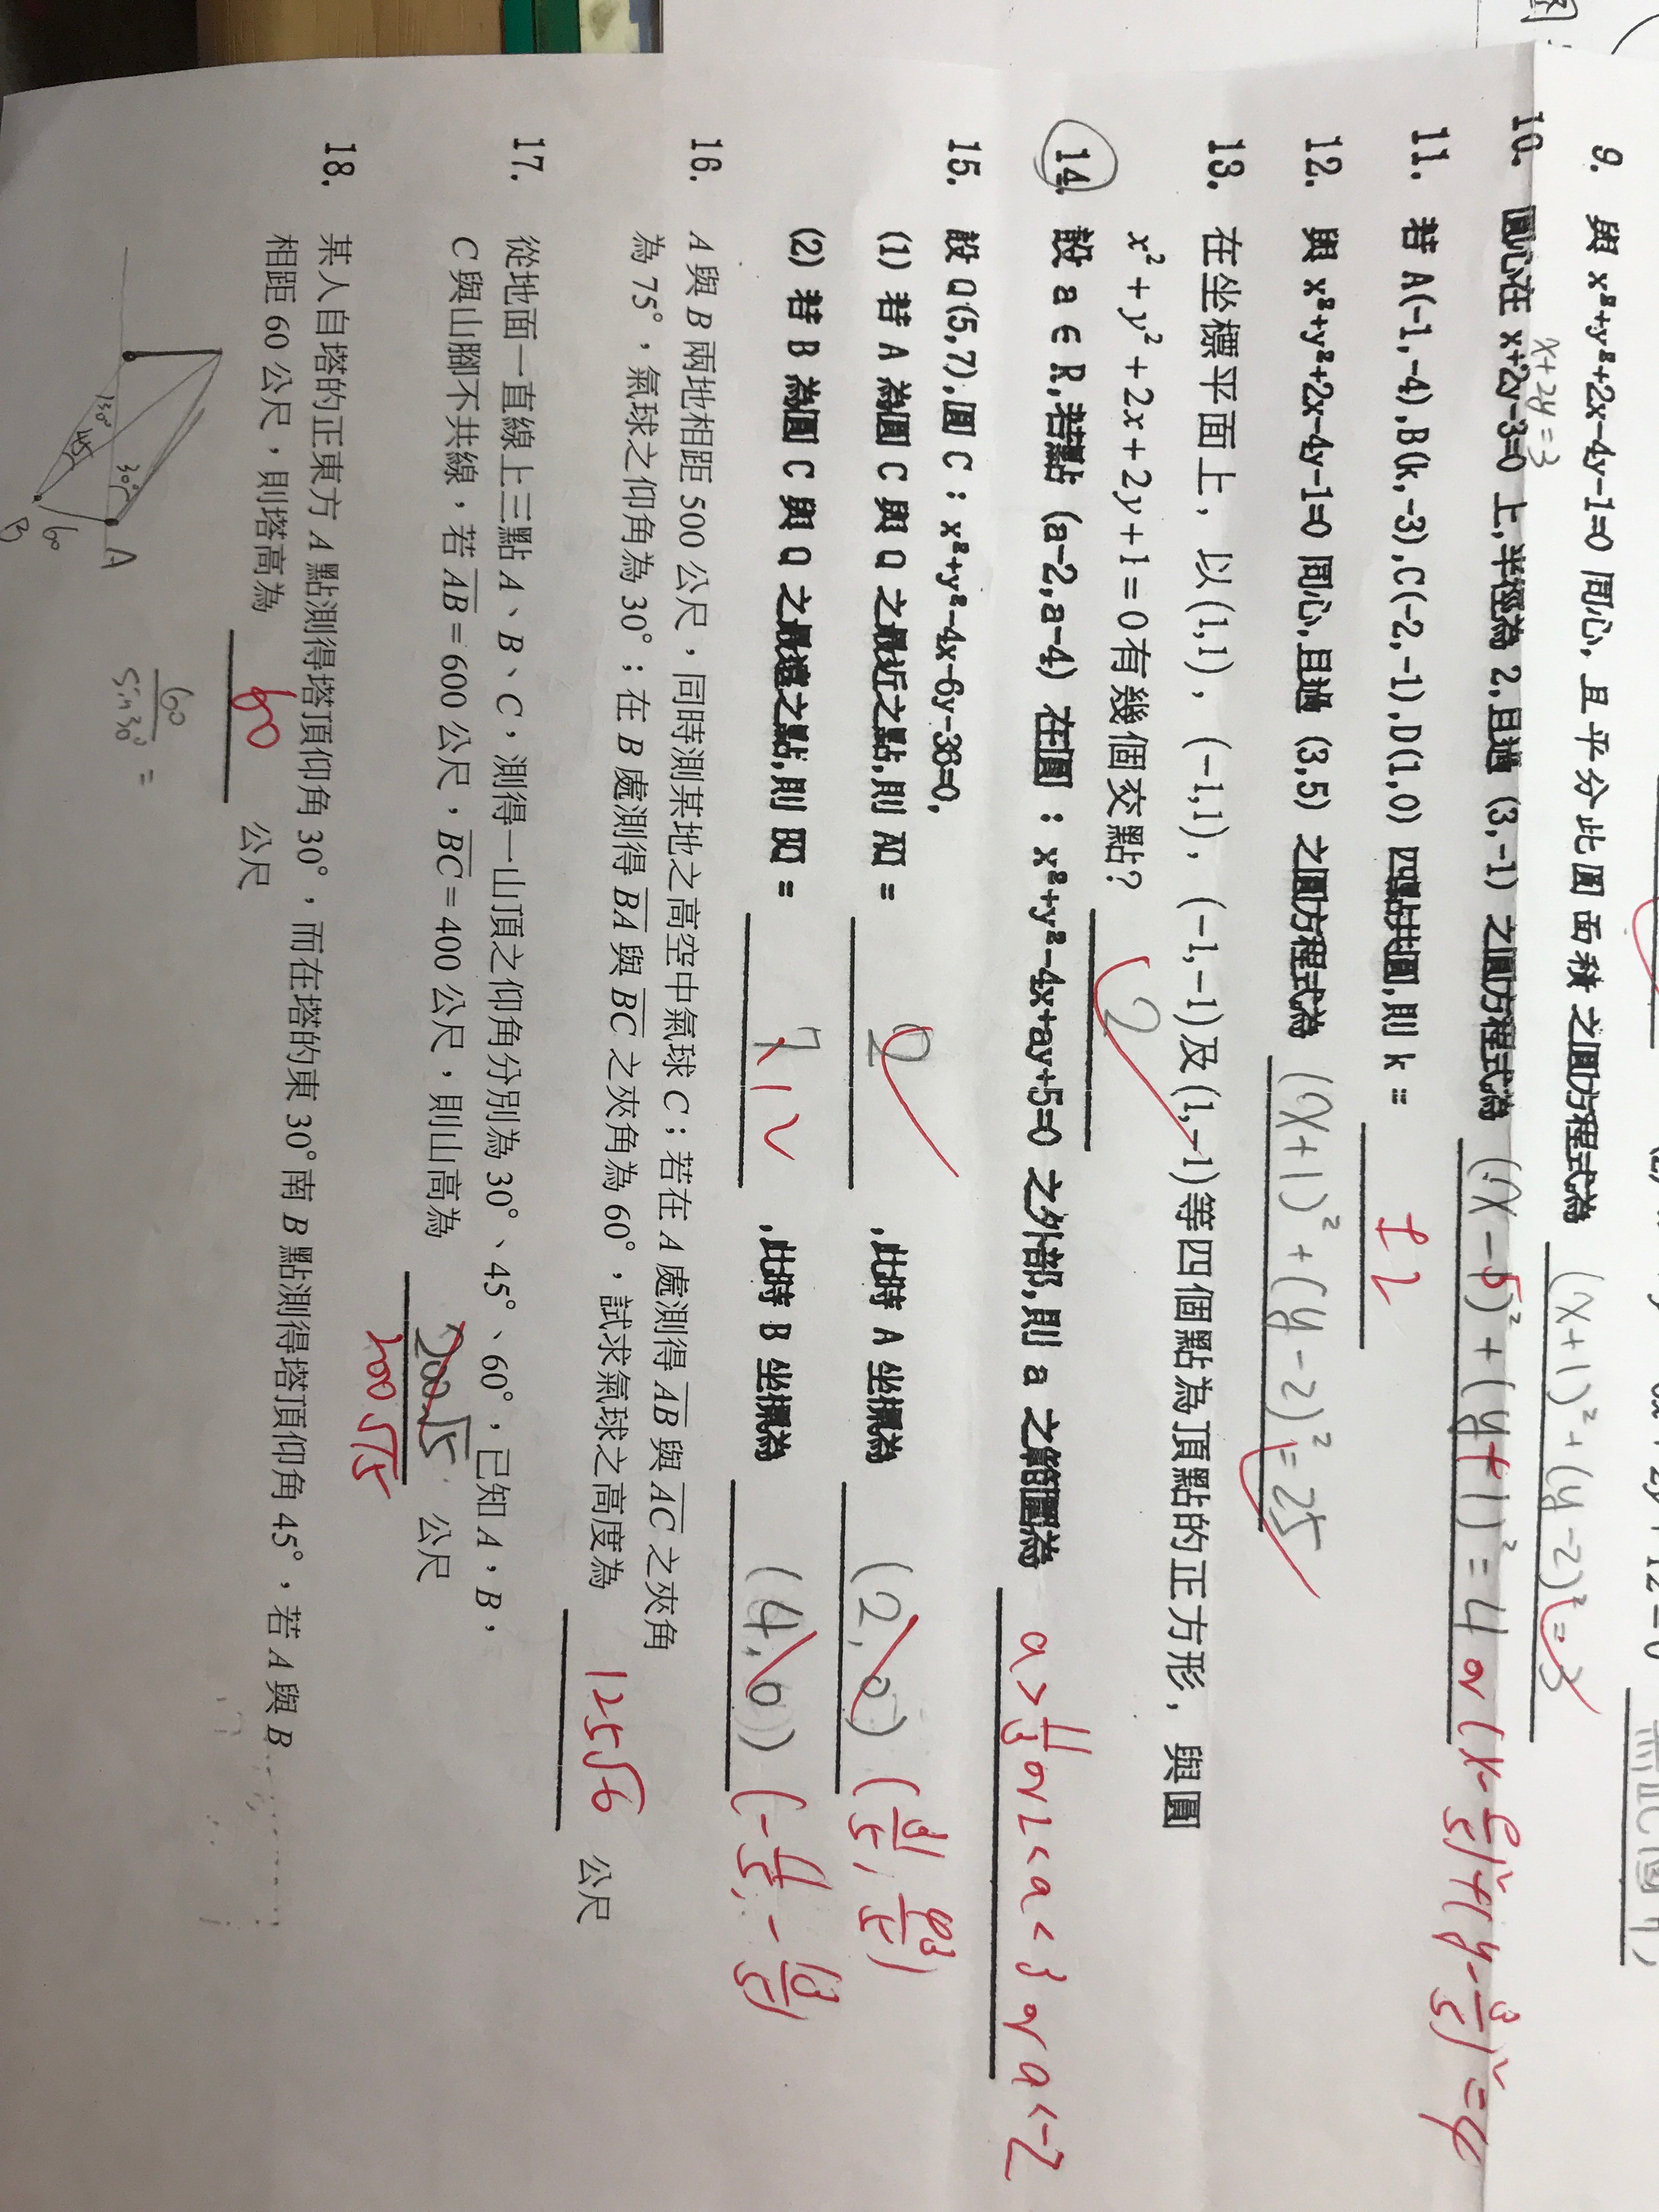 9. 與 x²+y²+2x-4y-1=0 同心, 且平分此圓面積之圓方程式為 (x+1)²+(y-2)²=3
x+2y=3
10. 圓心在 x+2y-3=0 上,半徑為 2,且過 (3,-1) 之圓方程式為 (x-5)²+(y+1)²=4 or (x-9/5)²+(y-3/5)²=4
11. 若 A(-1,-4),B(k,-3),C(-2,-1),D(1,0) 四點共圓,則 k = ±2
12. 與 x²+y²+2x-4y-1=0 同心,且過 (3,5) 之圓方程式為 (x+1)²+(y-2)²=25
13. 在坐標平面上，以(1,1)，(-1,1)，(-1,-1)及(1,-1)等四個點為頂點的正方形，與圓
x²+y²+2x+2y+1=0有幾個交點? 2
14. 設 a ∈ R,若點 (a-2,a-4) 在圓：x²+y²-4x+ay+5=0 之外部,則 a 之範圍為 a>11/3 or 2<a<3 or a<-2
15. 設 Q(5,7),圓 C：x²+y²-4x-6y-36=0,
(1) 若 A 為圓 C 與 Q 之最近之點,則 AQ = 2 ,此時 A 坐標為 (2,0) (31/5, 43/5)
(2) 若 B 為圓 C 與 Q 之最遠之點,則 BQ = 7 12 ,此時 B 坐標為 (4,0) (-11/5, -13/5)
16. A 與 B 兩地相距 500 公尺，同時測某地之高空中氣球 C；若在 A 處測得 AB 與 AC 之夾角
為 75°，氣球之仰角為 30°；在 B 處測得 BA 與 BC 之夾角為 60°，試求氣球之高度為 125√6 公尺
17. 從地面一直線上三點 A、B、C，測得一山頂之仰角分別為 30°、45°、60°，已知 A，B，
C 與山腳不共線，若 AB=600 公尺，BC=400 公尺，則山高為 200√5 公尺
200√15
18. 某人自塔的正東方 A 點測得塔頂仰角 30°，而在塔的東 30°南 B 點測得塔頂仰角 45°，若 A 與 B
相距 60 公尺，則塔高為 60 公尺
130°
45°
30°
A
B
60
60/sin30° =